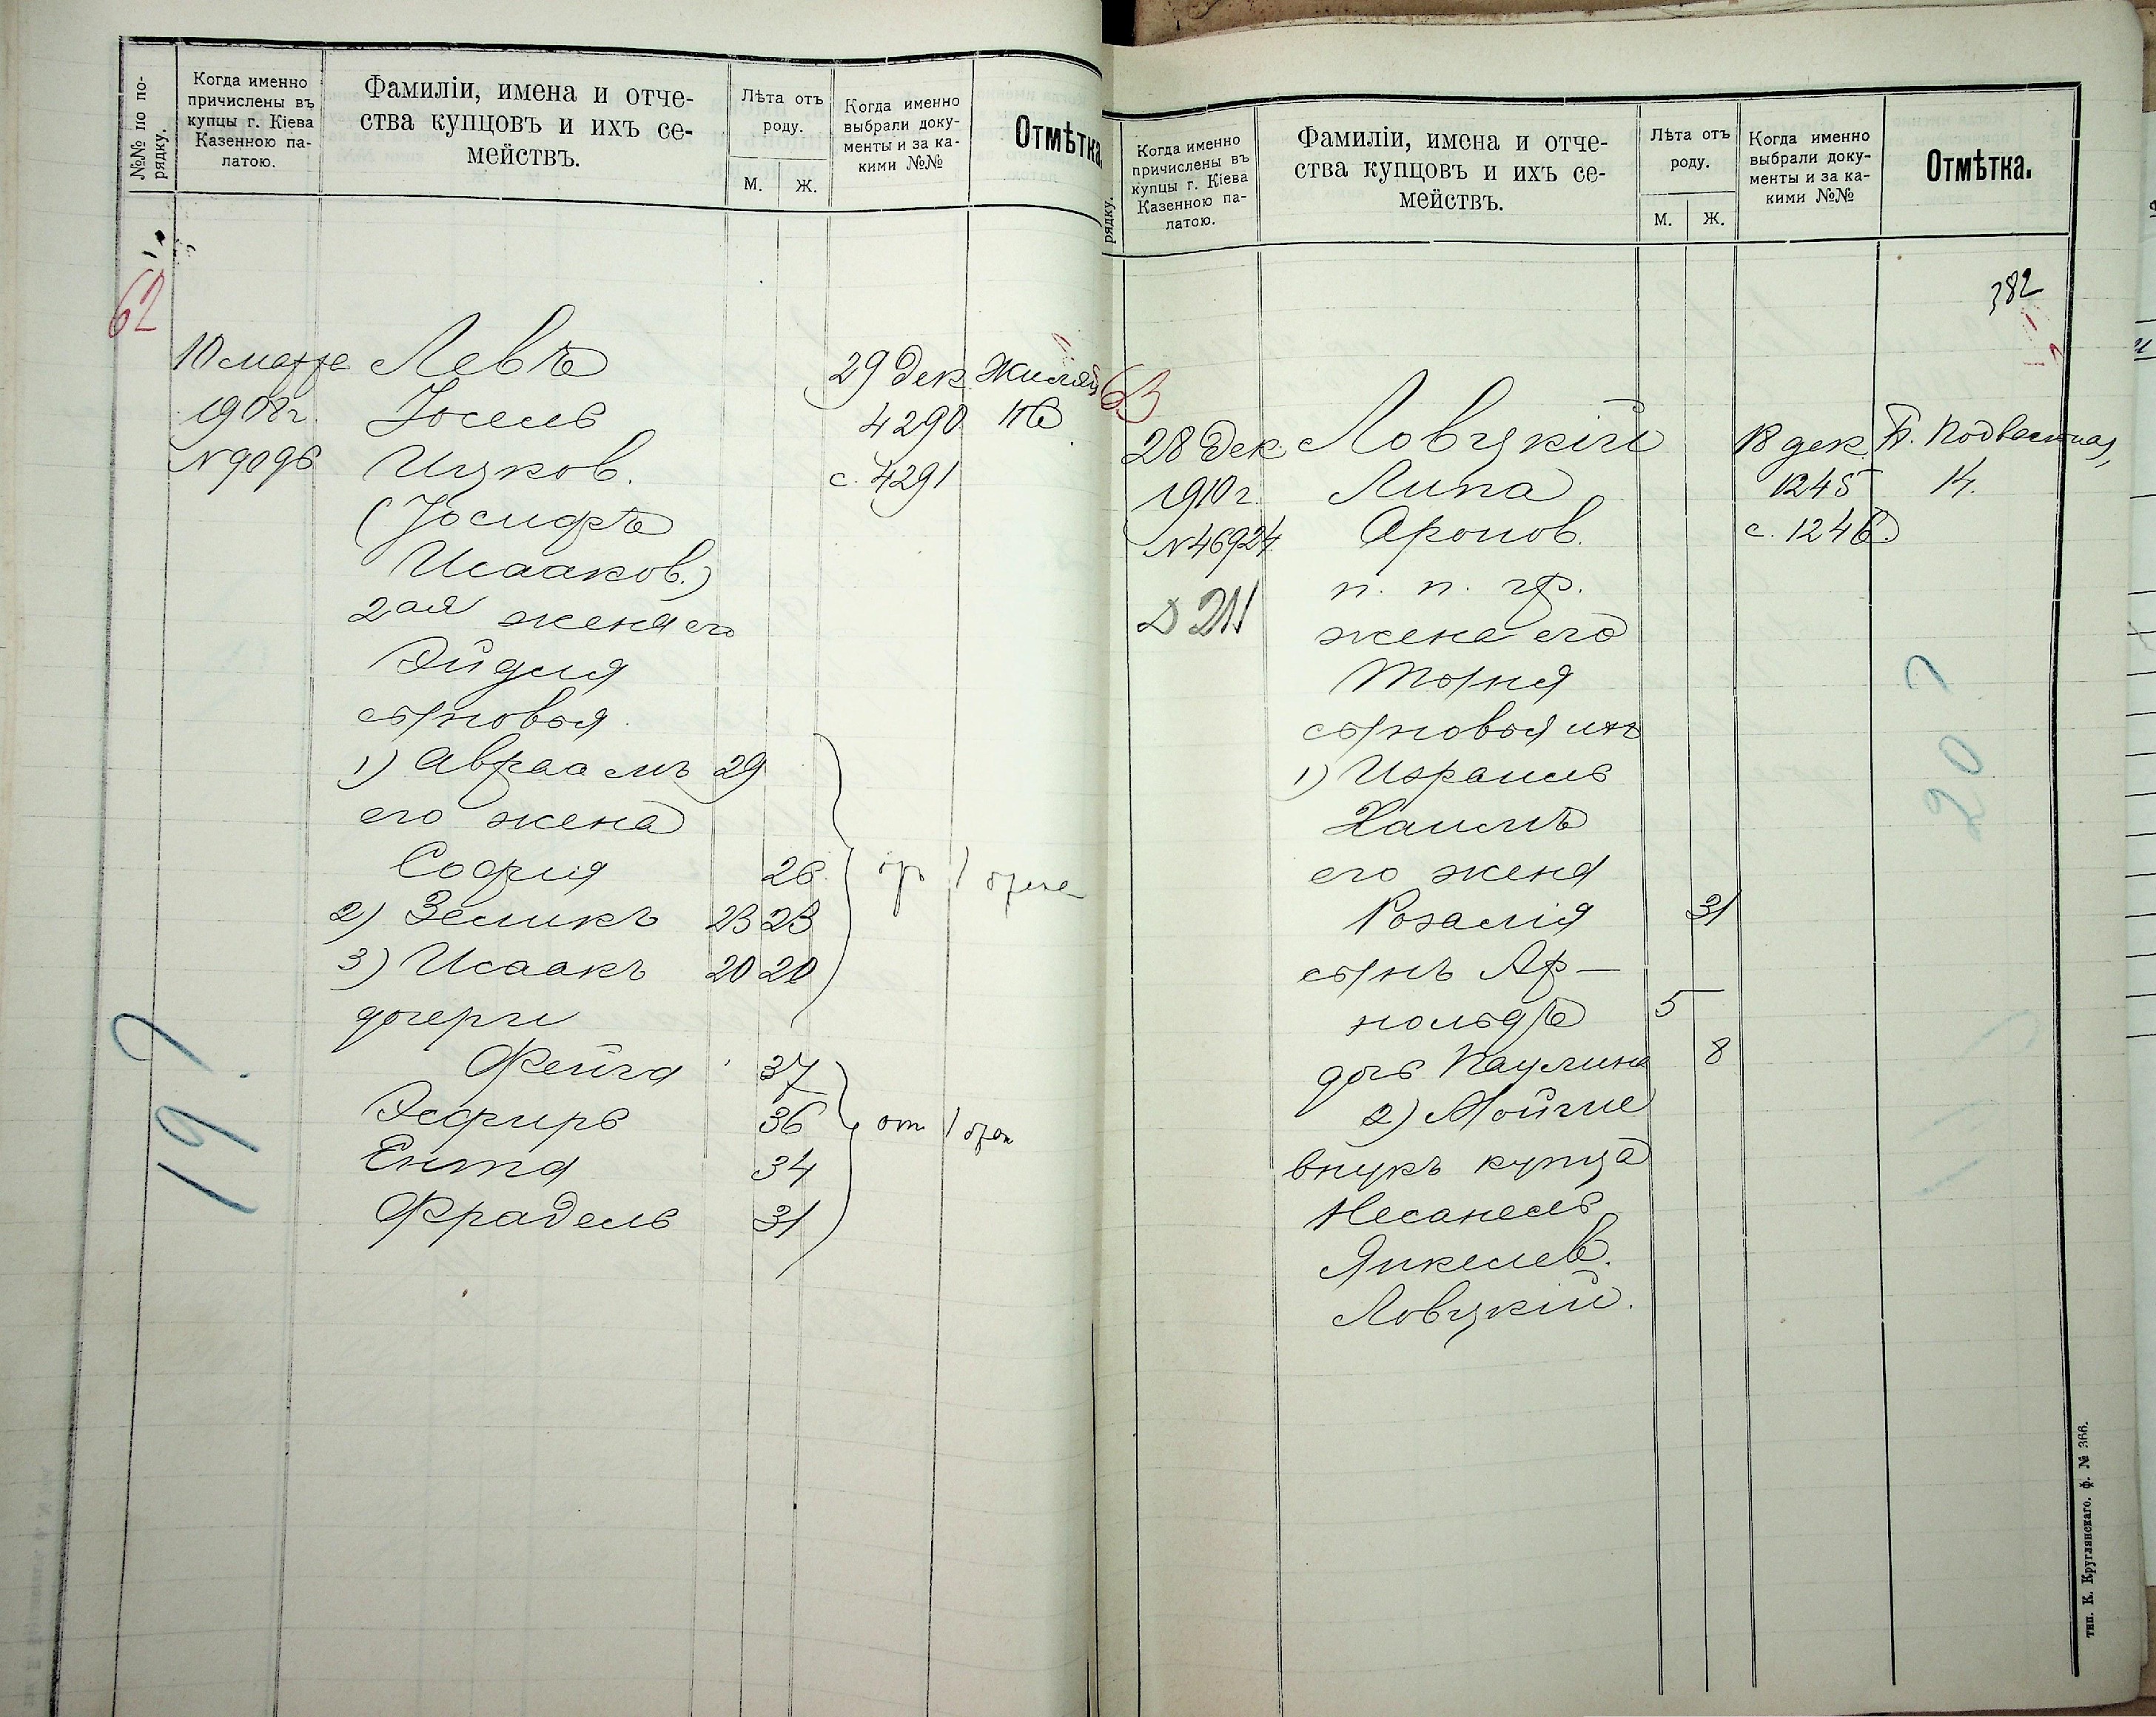 №№ по по-
рядку.
Когда именно
причислены въ
купцы г. Кіева
Казенною па-
латою.
Фамиліи, имена и отче-
ства купцовъ и ихъ се-
мействъ.
Лѣта отъ
роду.
М.
Ж.
Когда именно
выбрали доку-
менты и за ка-
кими №№
Отмѣтка.
62
10 марта
1908 г.
№ 9096
Левъ
Іосель
Ицков.
(Іосифъ
Исааков.)
2ая жена его
Эйдля
сыновья
1) Авраамъ 29
его жена
Софія 26
2) Зеликъ 23 23
3) Исаакъ 20 20
дочери
Фейга 37
Эсфирь 36
Ента 34
Фрадель 31
29 дек.
4290
с. 4291
116
19
рядку.
Когда именно
причислены въ
купцы г. Кіева
Казенною па-
латою.
Фамиліи, имена и отче-
ства купцовъ и ихъ се-
мействъ.
Лѣта отъ
роду.
М.
Ж.
Когда именно
выбрали доку-
менты и за ка-
кими №№
Отмѣтка.
382
63
28 дек.
1910 г.
№ 46924
Д 211
Ловцкій
Липа
Аронов.
п. п. гр.
жена его
Тойня
сыновья ихъ
1) Израиль
Хаимъ
его жена
Розалія 31
сынъ Ар-
нольдъ 5
дочь Паулина 8
2) Мойше
внукъ купца
Несанель
Янкелев.
Ловцкій.
18 дек.
1245
с. 1246
14.
20
тип. К. Круглянскаго. ф. № 366.